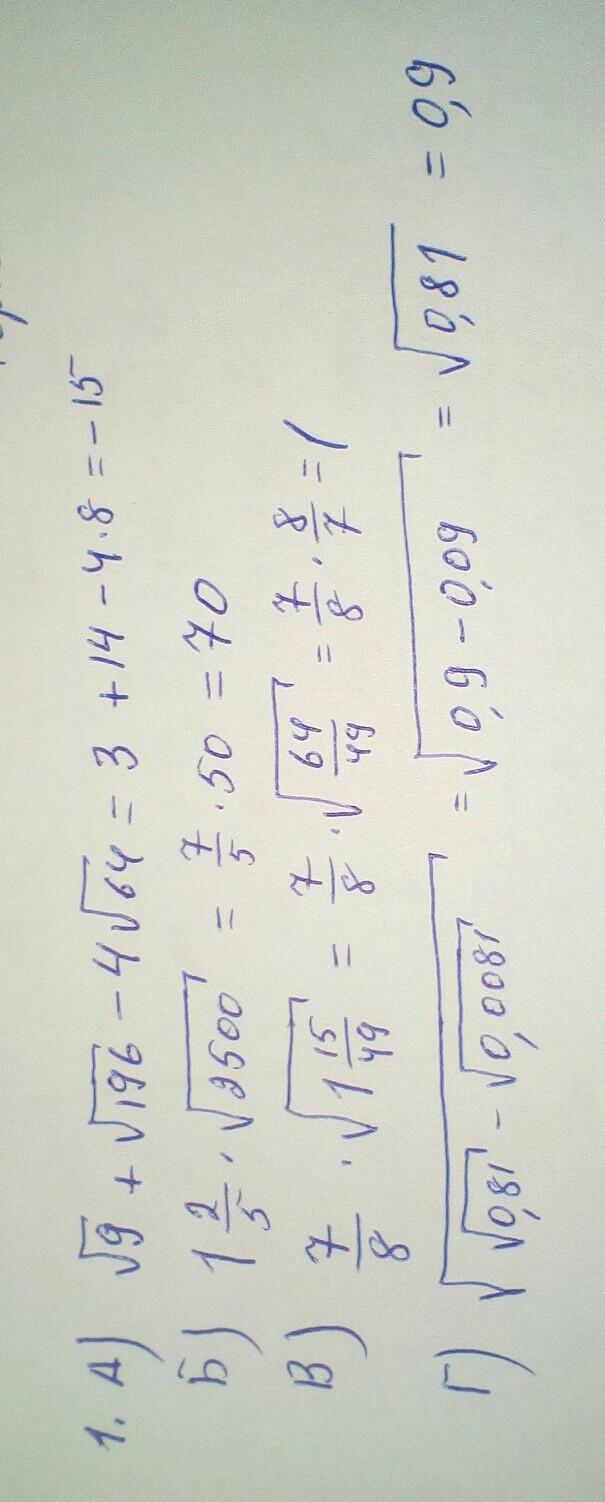 1. А) √9 + √196 − 4√64 = 3 + 14 − 4·8 = −15
Б) 1 2/5 · √2500 = 7/5 · 50 = 70
В) 7/8 · √(1 15/49) = 7/8 · √(64/49) = 7/8 · 8/7 = 1
Г) √(√0,81 − √0,0081) = √(0,9 − 0,09) = √0,81 = 0,9